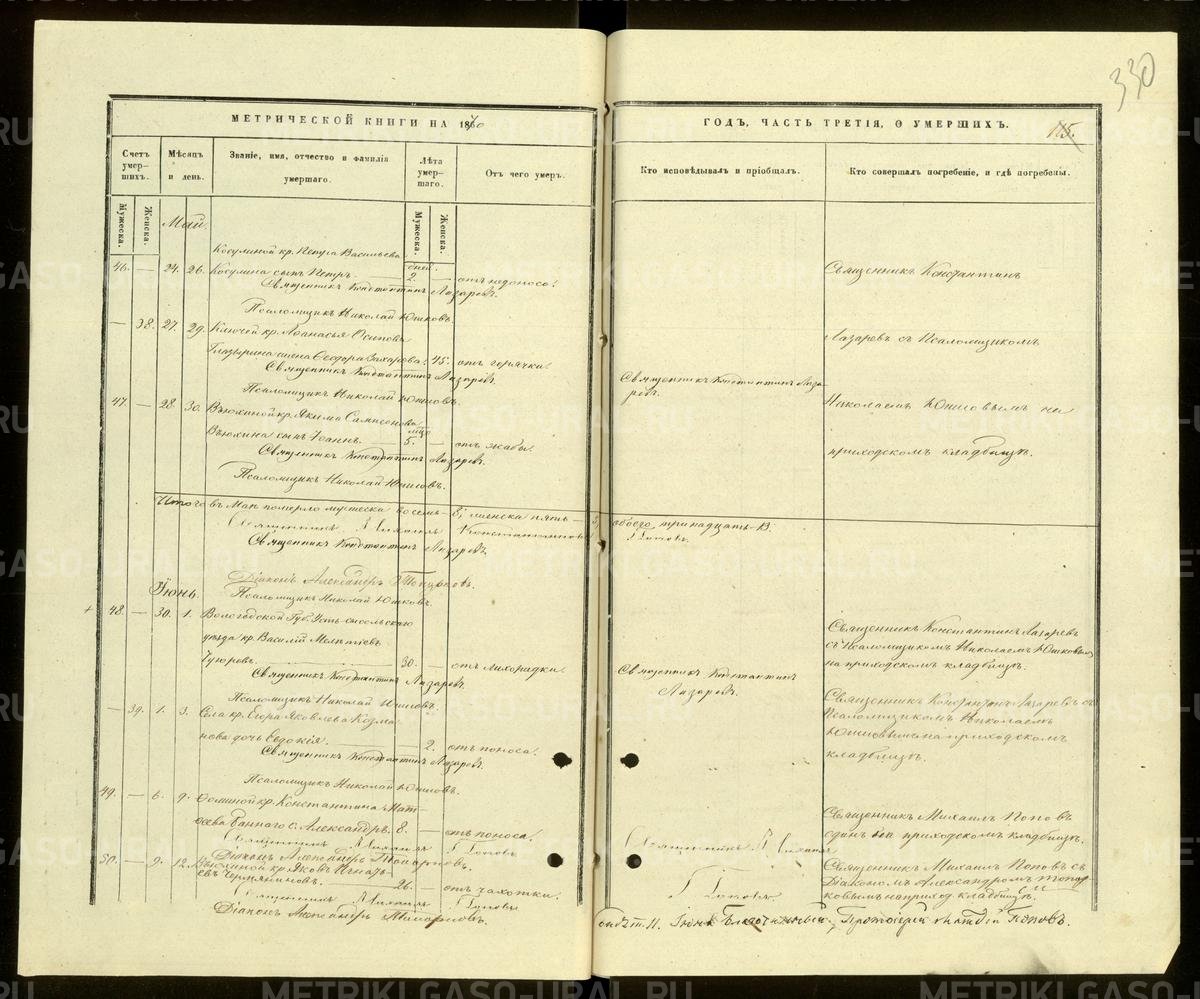 330
МЕТРИЧЕСКОЙ КНИГИ НА 1870
ГОДЪ, ЧАСТЬ ТРЕТІЯ, О УМЕРШИХЪ.
115.
Счетъ умер-шихъ.
Мѣсяцъ и день.
Званіе, имя, отчество и фамилія умершаго.
Лѣта умер-шаго.
Отъ чего умеръ.
Кто исповѣдывалъ и пріобщалъ.
Кто совершалъ погребеніе, и гдѣ погребены.
Мужеска.
Женска.
Мужеска.
Женска.
Май.
Косулиной кр. Петра Васильева
дней.
46. — 24. 26. Косулина сынъ Петръ. 2. — отъ недоноса.
Священникъ Константинъ Лазаревъ.
Псаломщикъ Николай Юшковъ.
— 38. 27. 29. Ключей кр. Аѳанасья Осипова
Глазырина жена Ѳеодора Захарова. 45. отъ горячки.
Священникъ Константинъ Лазаревъ.
Псаломщикъ Николай Юшковъ.
47. — 28. 30. Вьюхиной кр. Якима Сампсонова
Вьюхина сынъ Іоаннъ. 5. — отъ жабы.
Священникъ Константинъ Лазаревъ.
Псаломщикъ Николай Юшковъ.
Итого въ Маѣ померло мужеска восемь — 8; женска пять — 5,
Священникъ Михаилъ Константиновъ
Священникъ Константинъ Лазаревъ.
Діаконъ Александръ Топорковъ.
Псаломщикъ Николай Юшковъ.
Іюнь.
+ 48. — 30. 1. Вологодской Губ. Усть-сысольскаго
уѣзда кр. Василій
30. — отъ лихорадки.
Священникъ Константинъ Лазаревъ.
Псаломщикъ Николай Юшковъ.
— 39. 1. 3. Села кр. Егора Яковлева Козма-
нова дочь Евдокія. 2. отъ поноса.
Священникъ Константинъ Лазаревъ.
Псаломщикъ Николай Юшковъ.
49. — 6. 9. кр. Константина Мат-
ѳѣева с. Александръ. 8. — отъ поноса.
Священникъ Михаилъ Поповъ.
Діаконъ Александръ Топорковъ.
50. — 9. 12. кр. Яковъ Игнать-
евъ 26. — отъ чахотки.
Священникъ Михаилъ Поповъ
Діаконъ Александръ Топорковъ.
Священникъ Константинъ Лаза-
ревъ.
обоего тринадцать — 13.
Поповъ.
Священникъ Константинъ
Лазаревъ.
Священникъ Михаилъ
Поповъ
Священникъ Константинъ
Лазаревъ съ Псаломщикомъ
Николаемъ Юшковымъ на
приходскомъ кладбищѣ.
Священникъ Константинъ Лазаревъ
съ Псаломщикомъ Николаемъ Юшковымъ
на приходскомъ кладбищѣ.
Священникъ Константинъ Лазаревъ съ
Псаломщикомъ Николаемъ
Юшковымъ на приходскомъ
кладбищѣ.
Священникъ Михаилъ Поповъ
одинъ на приходскомъ кладбищѣ.
Священникъ Михаилъ Поповъ съ
Діакономъ Александромъ Топор-
ковымъ на приход. кладбищѣ.
11. Іюня Протоіерей Поповъ.
METRIKI.GASO-URAL.RU